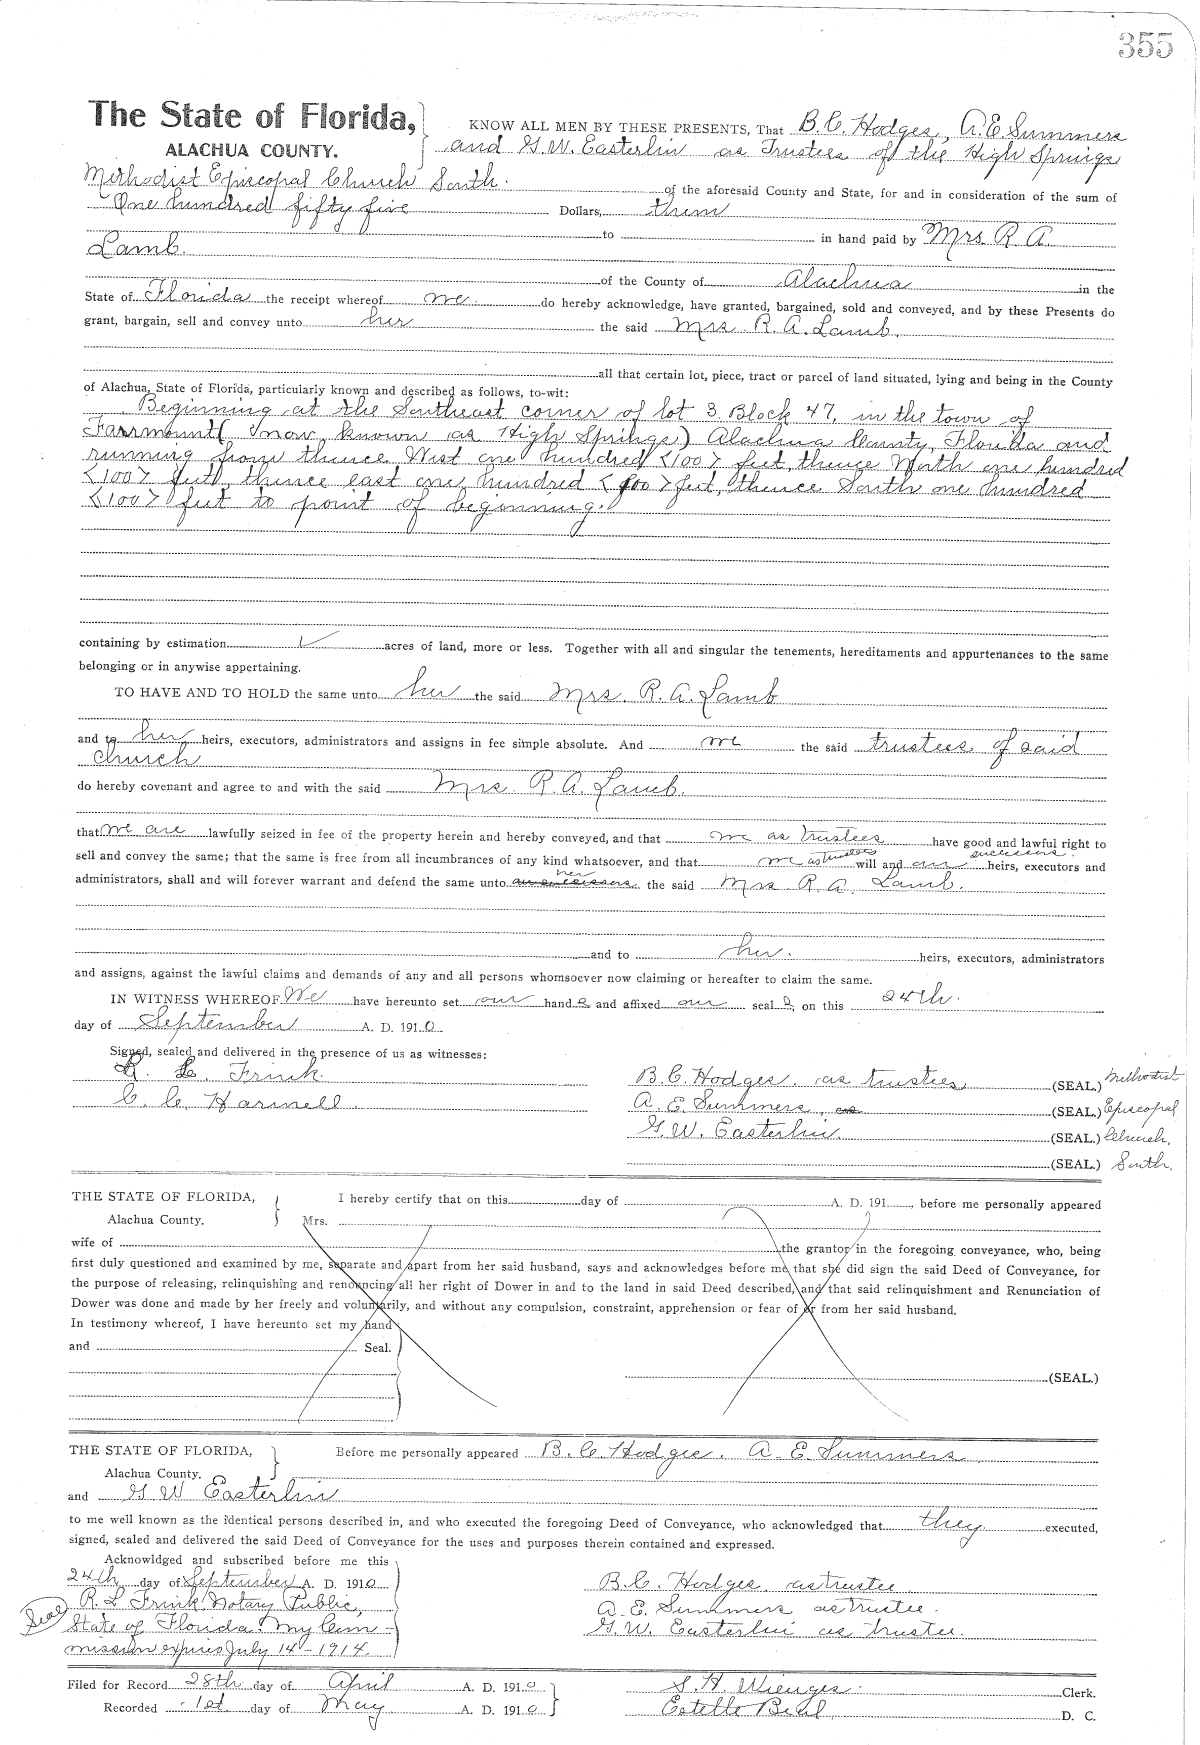 355
The State of Florida,
ALACHUA COUNTY.
KNOW ALL MEN BY THESE PRESENTS, That B. C. Hodges, A. E. Summers
and G. W. Easterlin as Trustees of the High Springs
Methodist Episcopal Church South. of the aforesaid County and State, for and in consideration of the sum of
One hundred fifty five Dollars, them
to in hand paid by Mrs R A.
Lamb.
of the County of Alachua in the
State of Florida the receipt whereof we do hereby acknowledge, have granted, bargained, sold and conveyed, and by these Presents do
grant, bargain, sell and convey unto her the said Mrs. R. A. Lamb.
all that certain lot, piece, tract or parcel of land situated, lying and being in the County
of Alachua, State of Florida, particularly known and described as follows, to-wit:
Beginning at the Southeast corner of lot 3 Block 47, in the town of
Fairmount (now known as High Springs) Alachua County, Florida and
running from thence West one hundred <100> feet, thence North one hundred
<100> feet, thence east one hundred <100> feet, thence South one hundred
<100> feet to point of beginning.
containing by estimation acres of land, more or less. Together with all and singular the tenements, hereditaments and appurtenances to the same
belonging or in anywise appertaining.
TO HAVE AND TO HOLD the same unto her the said Mrs. R. A. Lamb
and to her heirs, executors, administrators and assigns in fee simple absolute. And we the said trustees of said
church
do hereby covenant and agree to and with the said Mrs. R. A. Lamb.
that we are lawfully seized in fee of the property herein and hereby conveyed, and that we as trustees have good and lawful right to
sell and convey the same; that the same is free from all incumbrances of any kind whatsoever, and that we as trustees will and our successors heirs, executors and
administrators, shall and will forever warrant and defend the same unto her the said Mrs R A. Lamb.
and to her. heirs, executors, administrators
and assigns, against the lawful claims and demands of any and all persons whomsoever now claiming or hereafter to claim the same.
IN WITNESS WHEREOF We have hereunto set our hands and affixed our seals on this 24th.
day of September A. D. 1910
Signed, sealed and delivered in the presence of us as witnesses:
R. L. Frink.
C. C. Harmell.
B. C. Hodges. as trustees (SEAL.) Methodist
A. E. Summers, as (SEAL.) Episcopal
G. W. Easterlin. (SEAL.) Church,
(SEAL.) South.
THE STATE OF FLORIDA,
Alachua County.
I hereby certify that on this day of A. D. 191 , before me personally appeared
Mrs.
wife of the grantor in the foregoing conveyance, who, being
first duly questioned and examined by me, separate and apart from her said husband, says and acknowledges before me that she did sign the said Deed of Conveyance, for
the purpose of releasing, relinquishing and renouncing all her right of Dower in and to the land in said Deed described, and that said relinquishment and Renunciation of
Dower was done and made by her freely and voluntarily, and without any compulsion, constraint, apprehension or fear of or from her said husband.
In testimony whereof, I have hereunto set my hand
and Seal.
(SEAL.)
THE STATE OF FLORIDA,
Alachua County.
Before me personally appeared B. C. Hodges. A. E. Summers
and G W Easterlin
to me well known as the identical persons described in, and who executed the foregoing Deed of Conveyance, who acknowledged that they executed,
signed, sealed and delivered the said Deed of Conveyance for the uses and purposes therein contained and expressed.
Acknowldged and subscribed before me this
24th day of September A. D. 1910
Seal R. L Frink Notary Public,
State of Florida. My Com-
mission expires July 14-1914.
B. C. Hodges. as trustee
A. E. Summers as trustee.
G. W. Easterlin as trustee.
Filed for Record 28th day of April A. D. 1910
Recorded 1st day of May A. D. 1910
S. H. Wienges. Clerk.
Estelle Beal, D. C.